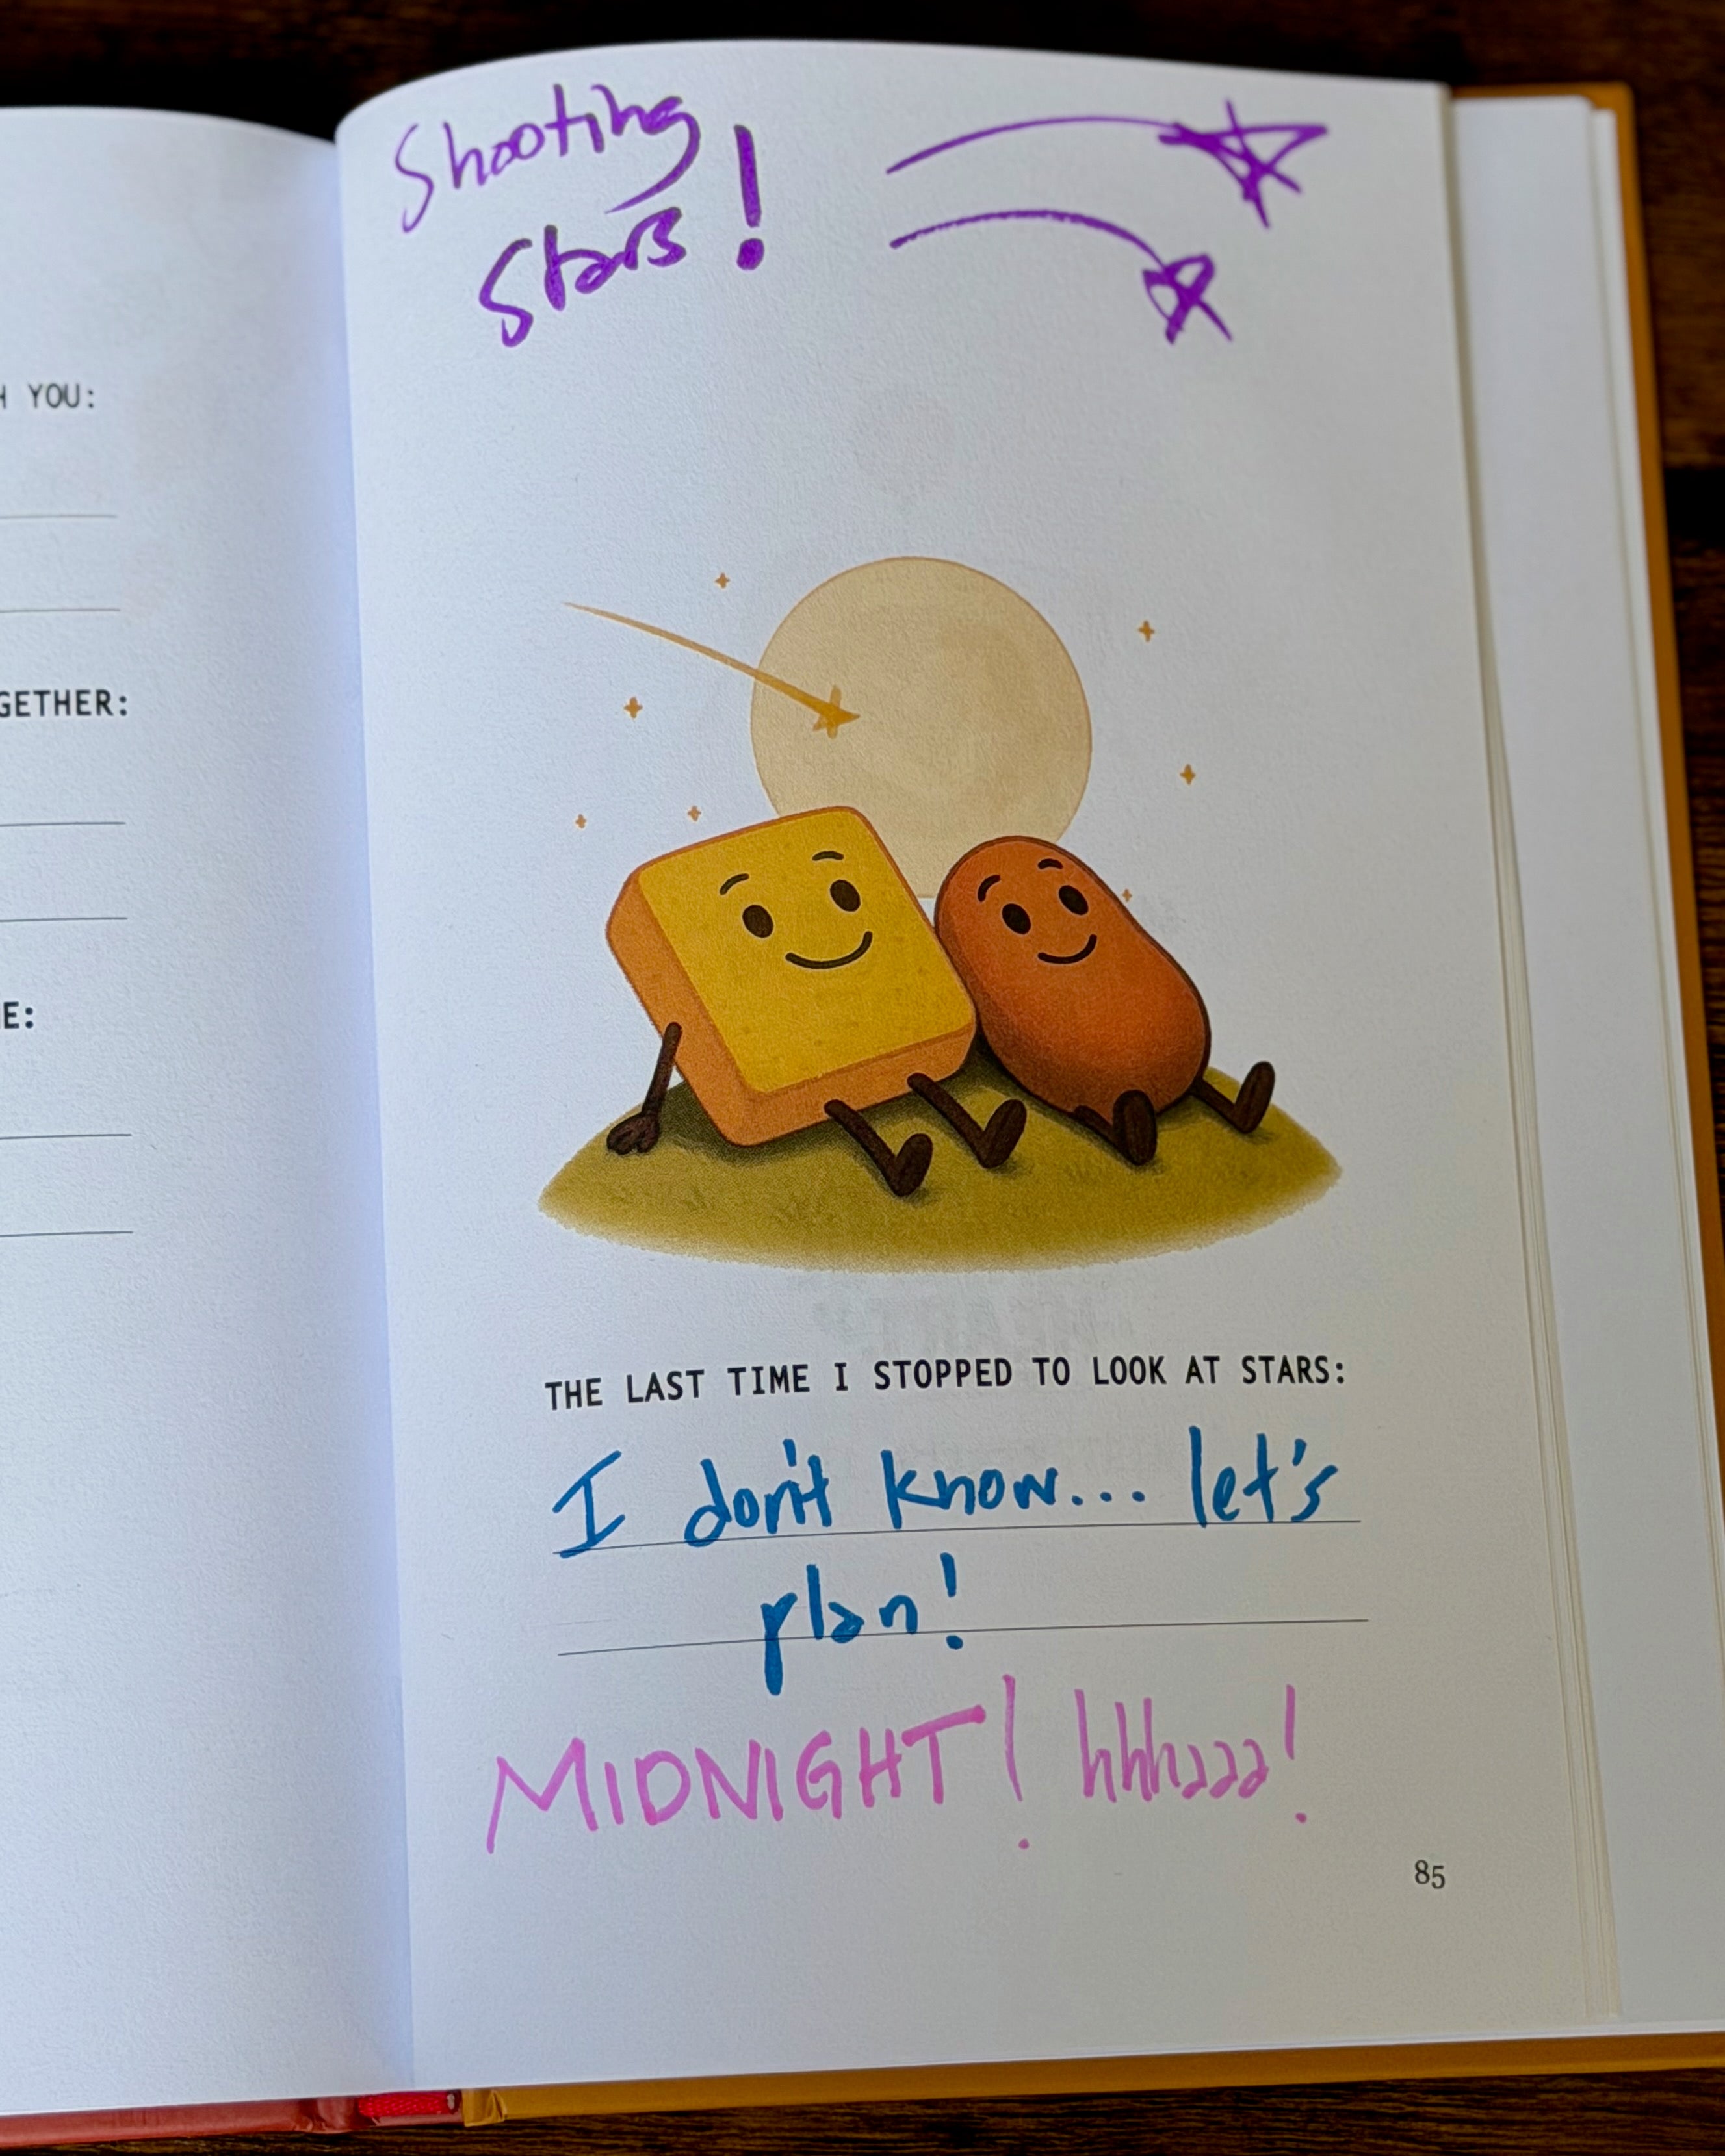 H YOU:
GETHER:
E:
Shooting
Stars!
THE LAST TIME I STOPPED TO LOOK AT STARS:
I don't know... let's
plan!
MIDNIGHT! hhhaaa!
85